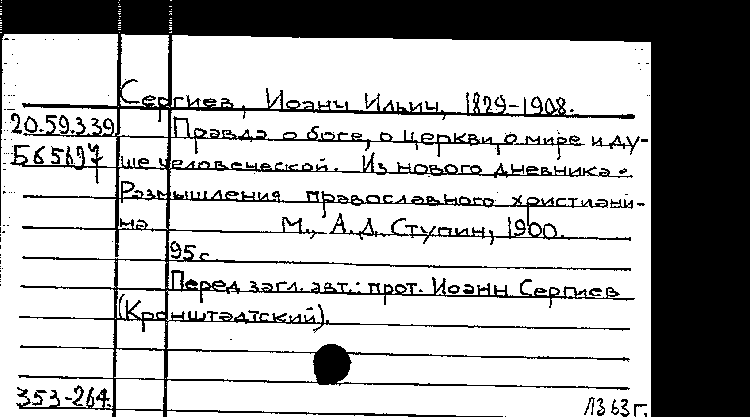 Сергиев, Иоанн Ильич, 1829-1908.
20.59.339 Правда о боге, о церкви, о мире и ду-
Б65697 ше человеческой. Из нового дневника.
Размышления православного христиани-
на. М., А.Д. Ступин, 1900.
95 с.
Перед загл. авт.: прот. Иоанн Сергиев
(Кронштадтский).
353-264. ЛЗ 63 г.